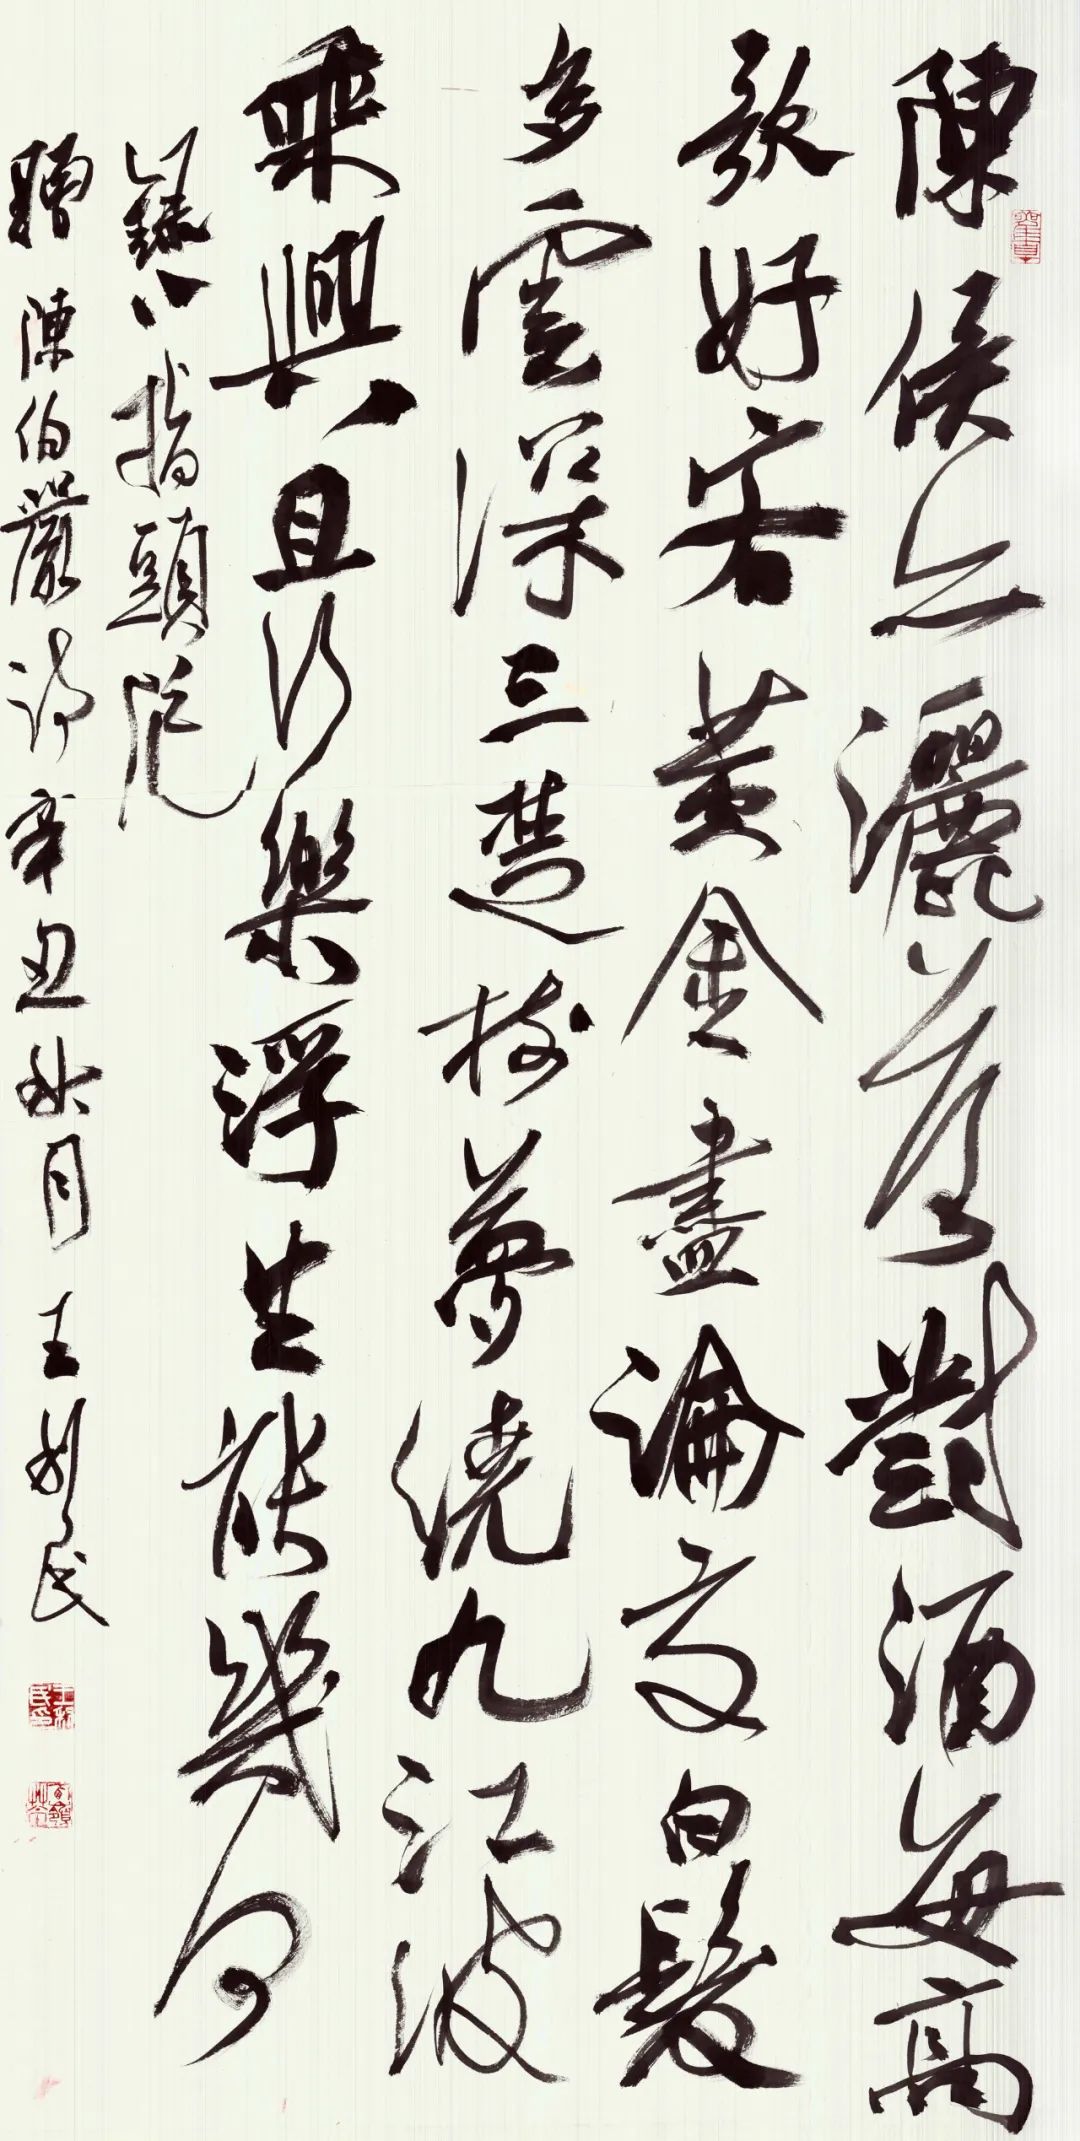 陳侯亦灑落對酒每高
歌好客黃金盡論交白髮
多雲深三楚樹夢繞九江波
乘興且行樂浮生能幾何
錄八指頭陀
贈陳伯嚴詩辛丑秋月王民